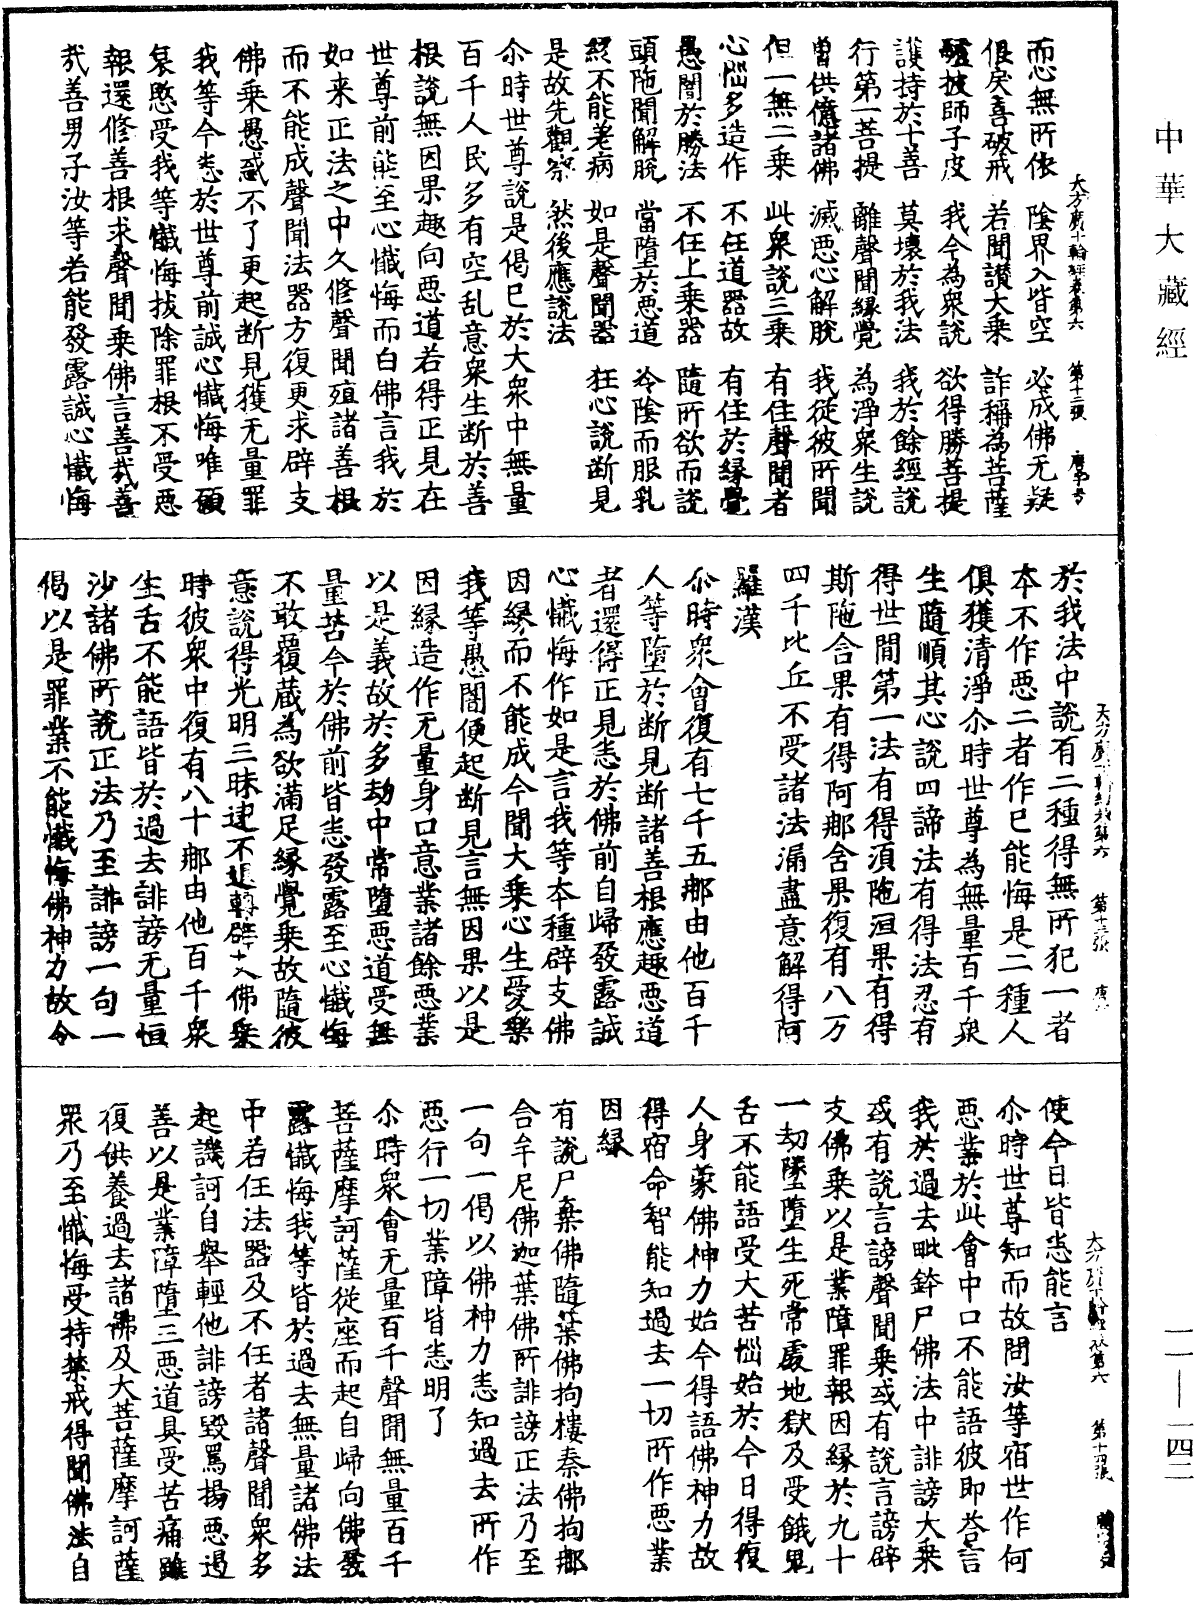 中華大藏經
而心無所依　陰界入皆空　必成佛无疑
佷戾喜破戒　若聞讃大乘　詐稱為菩薩
驢披師子皮　我今為衆說　欲得勝菩提
護持於十善　莫壞於我法　我於餘經說
行第一菩提　離聲聞緣覺　為淨衆生說
曾供億諸佛　滅惡心解脫　我従彼所聞
但一無二乘　此衆說三乘　有住聲聞者
心惱多造作　不任道器故　有住於緣覺
愚闇於勝法　不任上乘器　隨所欲而說
頭陁聞解脫　當墮於惡道　冷陰而服乳
終不能差病　如是聲聞器　狂心說斷見
是故先觀察　然後應說法
尒時世尊說是偈已於大衆中無量
百千人民多有空乱意衆生断於善
根說無因果趣向惡道若得正見在
世尊前能至心懺悔而白佛言我於
如来正法之中久修聲聞殖諸善根
而不能成聲聞法器方復更求辟支
佛乘愚惑不了更起断見獲无量罪
我等今悉於世尊前誠心懺悔唯願
哀愍受我等懺悔拔除罪根不受惡
報還修善根求聲聞乘佛言善哉善
哉善男子汝等若能發露誠心懺悔
大方廣十輪經卷第六　第十二張　唐字号
於我法中說有二種得無所犯一者
本不作惡二者作已能悔是二種人
俱獲清淨尒時世尊為無量百千衆
生隨順其心說四諦法有得法忍有
得世間第一法有得湏陁洹果有得
斯陁含果有得阿那含果復有八万
四千比丘不受諸法漏盡意解得阿
羅漢
尒時衆會復有七千五那由他百千
人等墮於断見断諸善根應趣惡道
者還得正見悉於佛前自歸發露誠
心懺悔作如是言我等本種辟支佛
因緣而不能成今聞大乘心生愛樂
我等愚闇便起断見言無因果以是
因緣造作无量身口意業諸餘惡業
以是義故於多劫中常墮惡道受無
量苦今於佛前皆悉發露至心懺悔
不敢覆蔵為欲滿足緣覺乘故隨彼
意說得光明三昧逮不退轉辟支佛乘
時彼衆中復有八十那由他百千衆
生舌不能語皆於過去誹謗无量恒
沙諸佛所說正法乃至誹謗一句一
偈以是罪業不能懺悔佛神力故令
第十三張
使今日皆悉能言
尒時世尊知而故問汝等宿世作何
惡業於此會中口不能語彼即荅言
我於過去毗鉢尸佛法中誹謗大乘
或有說言謗聲聞乘或有說言謗辟
支佛乘以是業障罪報因緣於九十
一劫墜墮生死常處地獄及受餓鬼
舌不能語受大苦惱始於今日得復
人身蒙佛神力始今得語佛神力故
得宿命智能知過去一切所作惡業
因緣
有說尸棄佛隨葉佛拘樓秦佛拘那
含牟尼佛迦葉佛所誹謗正法乃至
一句一偈以佛神力悉知過去所作
惡行一切業障皆悉明了
尒時衆會无量百千聲聞無量百千
菩薩摩訶薩従座而起自歸向佛發
露懺悔我等皆於過去無量諸佛法
中若任法器及不任者諸聲聞衆多
起譏訶自舉輕他誹謗毀罵揚惡過
善以是業障墮三惡道具受苦痛雖
復供養過去諸佛及大菩薩摩訶薩
衆乃至懺悔受持禁戒得聞佛法自
第十四張
一一—一四二